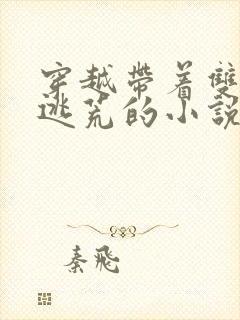 穿越帶着雙
逃荒的小說
秦飛